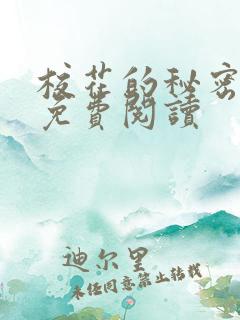 校花的秘密
免費閱讀
迪尔里
未经同意禁止转载